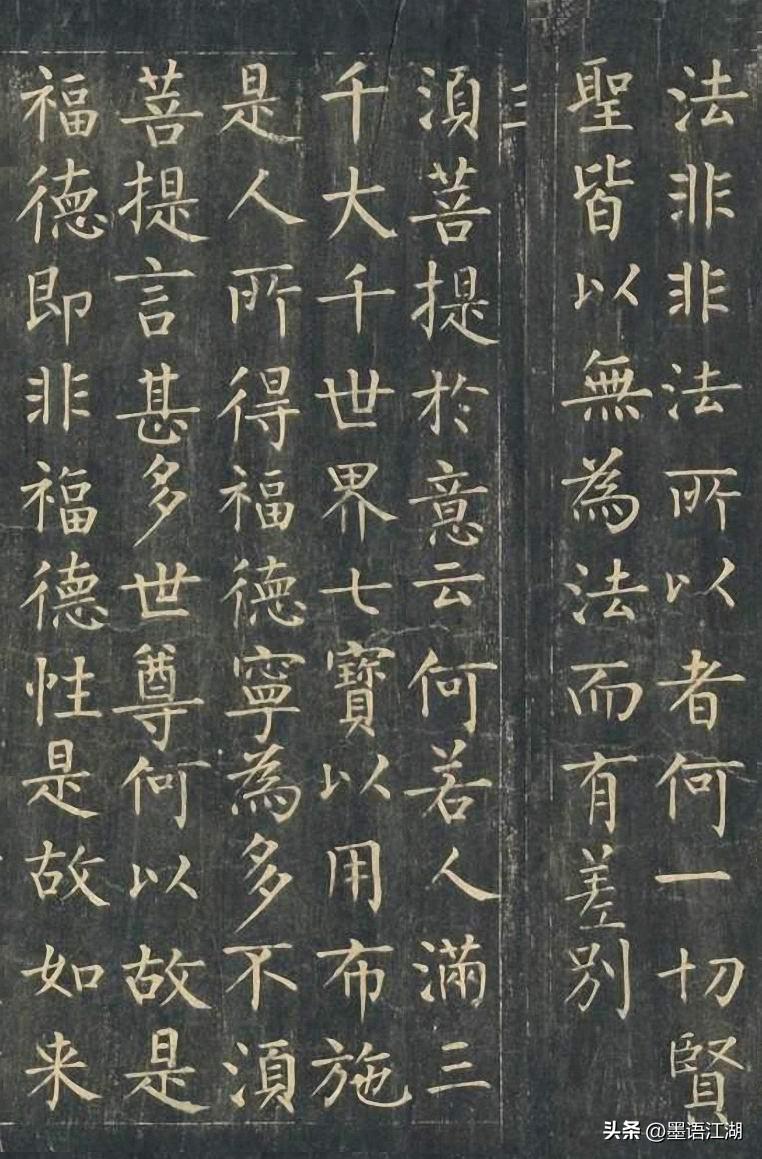 法非非法所以者何一切賢
聖皆以無為法而有差别
三
須菩提於意云何若人滿三
千大千世界七寶以用布施
是人所得福德寧為多不須
菩提言甚多世尊何以故是
福德即非福德性是故如来
头条 @墨语江湖